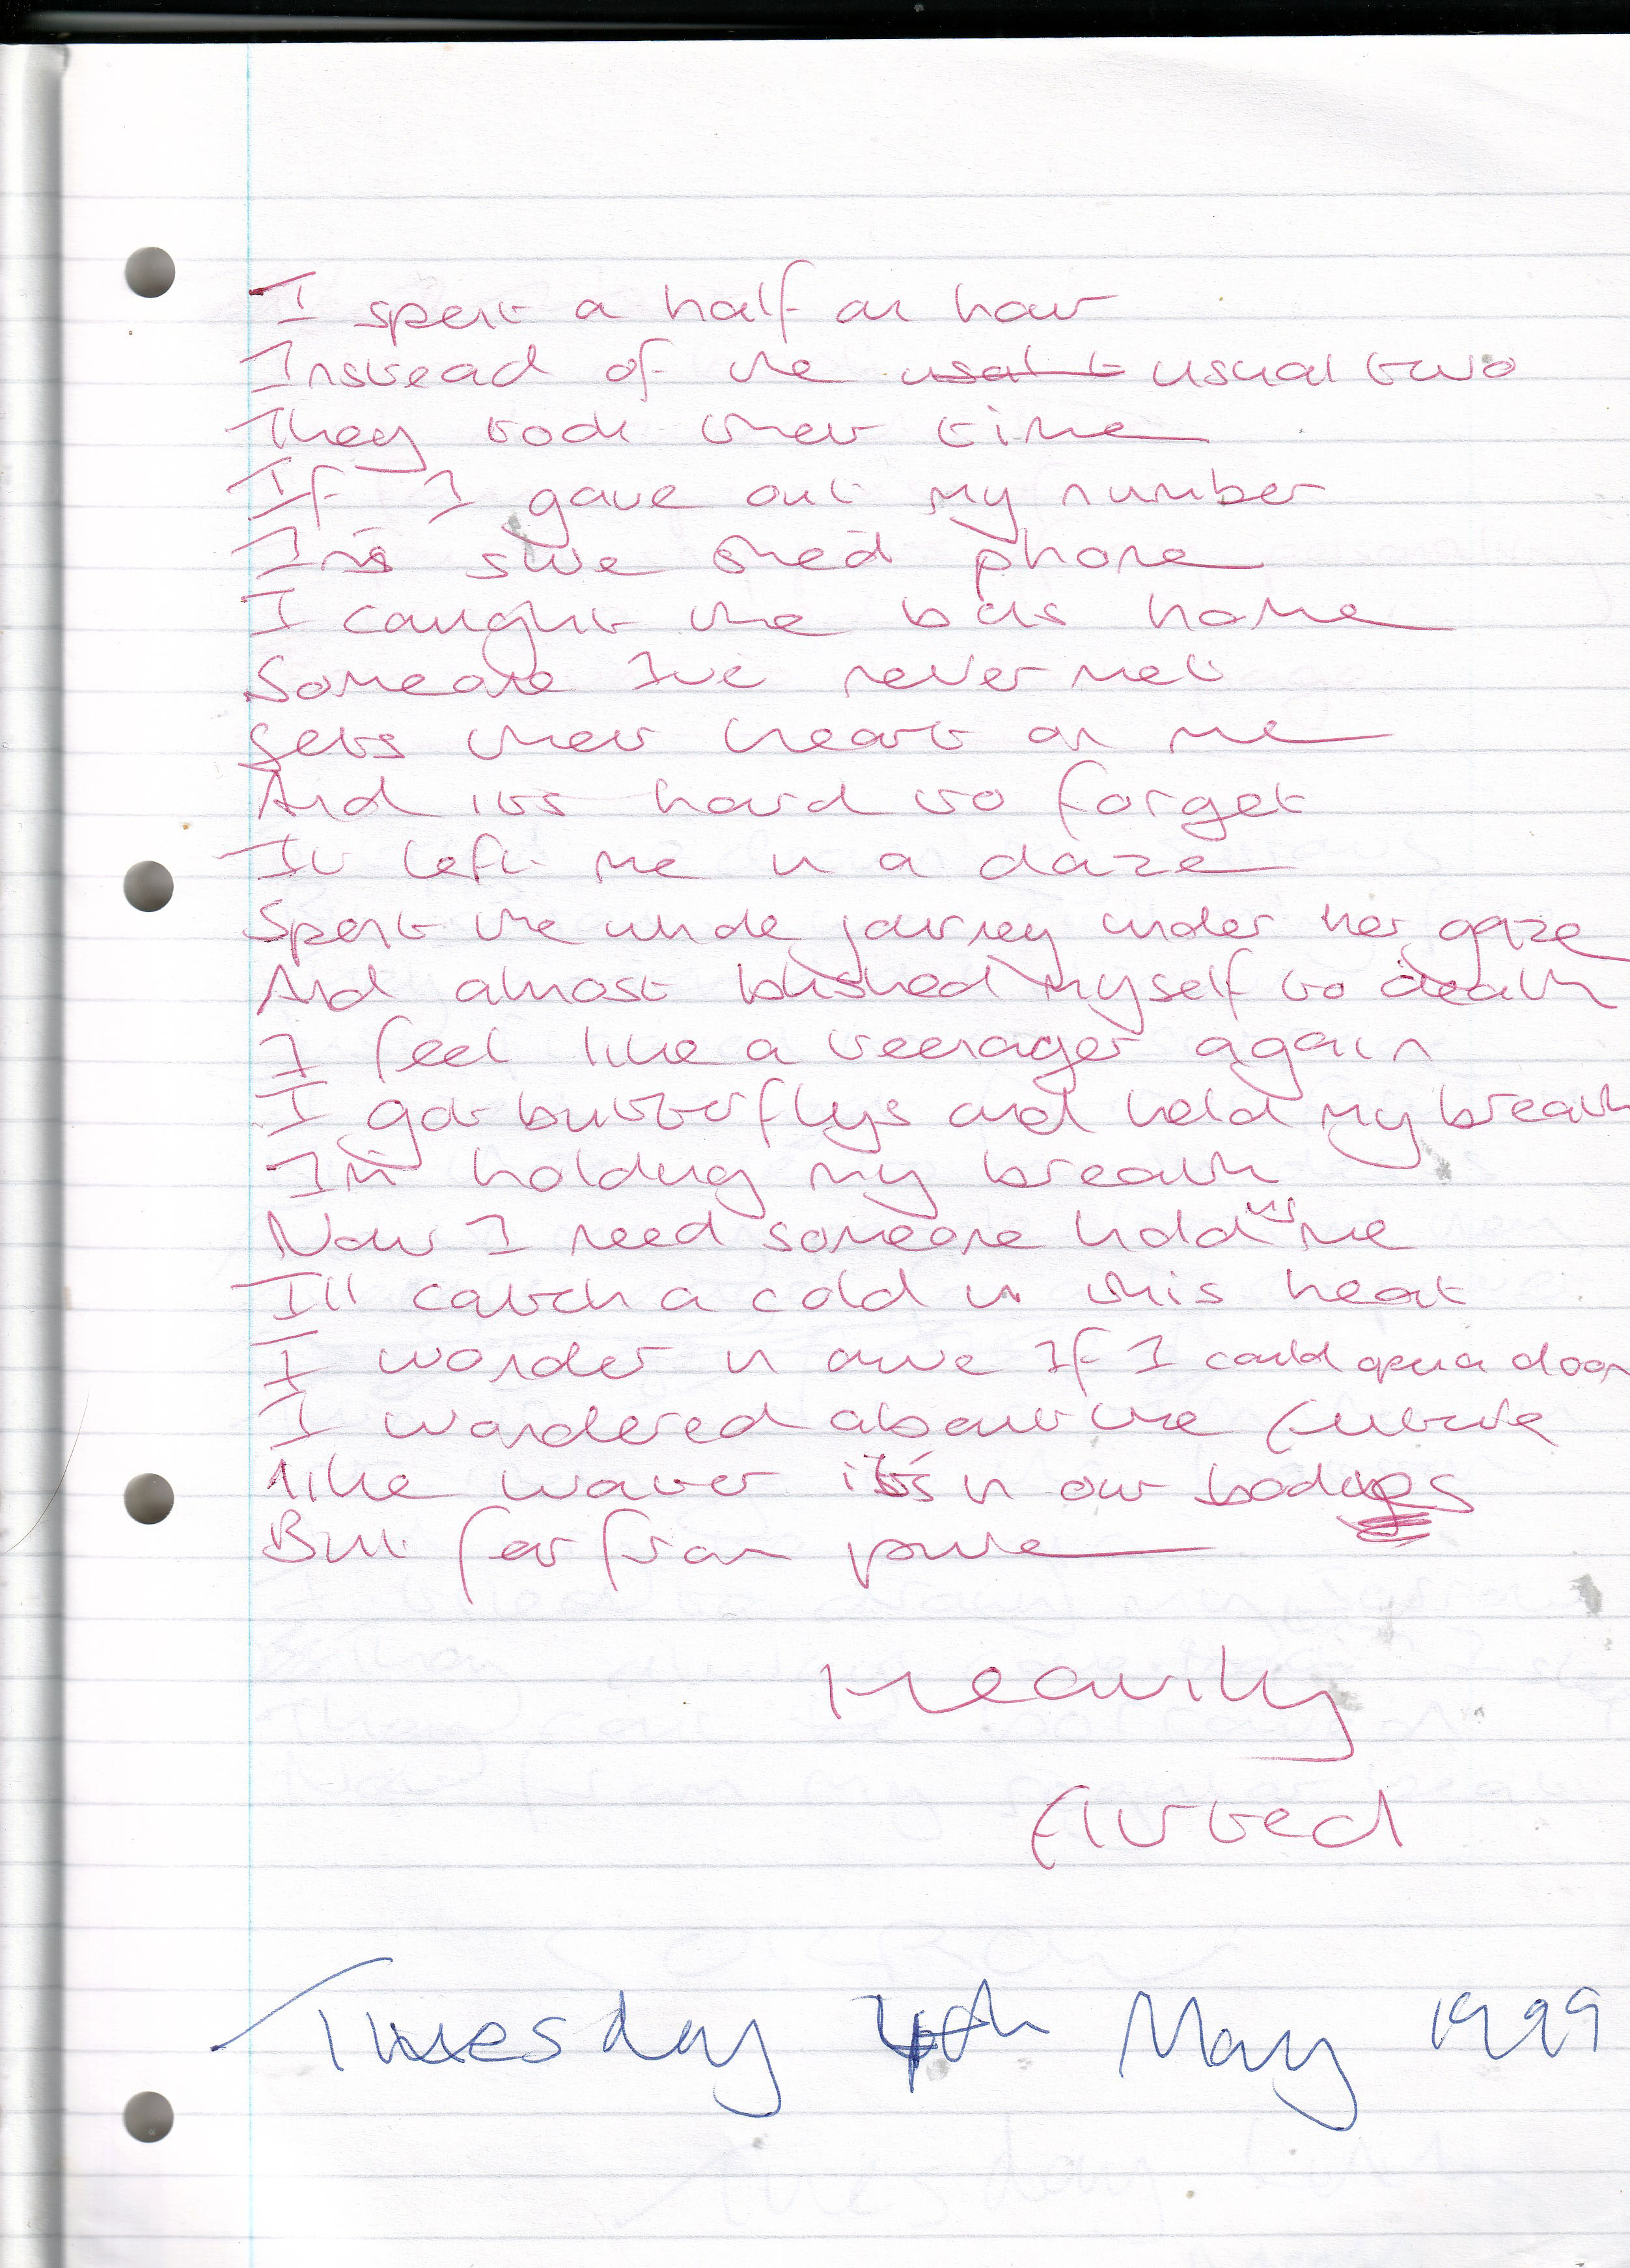 I spent a half an hour
Instead of the usal t usual two
They took their time
If I gave out my number
I'm sure she'd phone
I caught the bus home
Someone I've never met
Sets their heart on me
And its hard to forget
It left me in a daze
Spent the whole journey under her gaze
And almost blushed myself to death
I feel like a teenager again
I got butterflys and held my breath
I'm holding my breath
Now I need someone hold me
I'll catch a cold in this heat
I wonder in awe If I could open a door
I wondered about the future
like water it's in our bodys
But far from pure
Heavily
flirted
Tuesday 4th May 1999